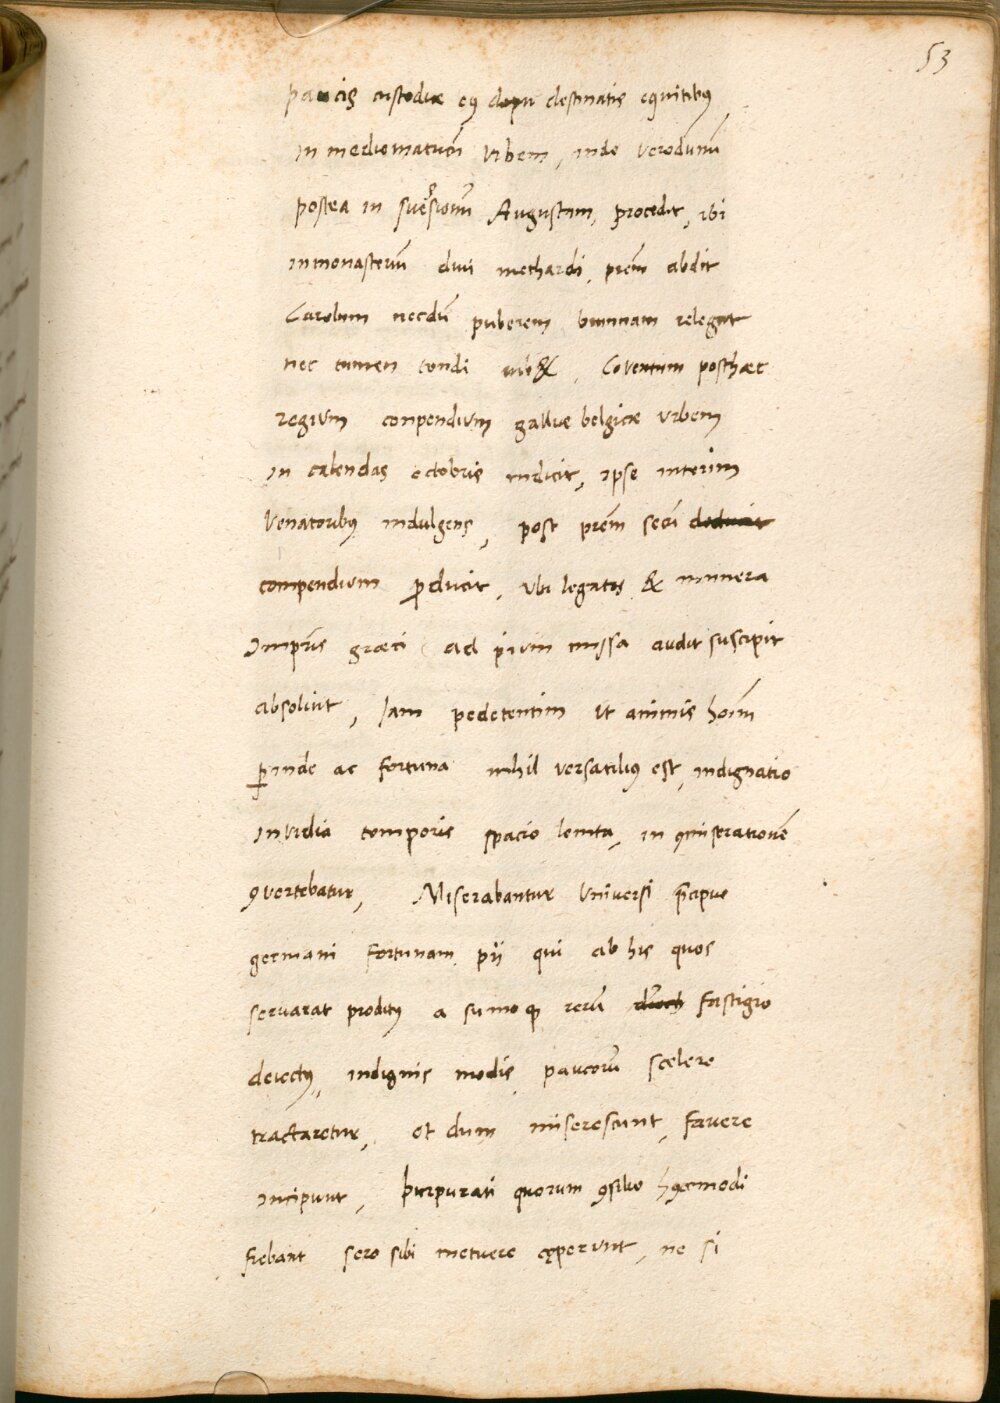 53
paucis custodiæ eꝰ depu destinatis equitibꝰ
in mediomatricū Vrbem, inde Verodunū
postea in suessionū Augustam, procedit, ibi
in monasteriū diui methardi, prēm abdit
Carolum necdū puberem bruman relegat
nec tamen tondi iub&, Coventum posthæc
regium conpendium galliæ belgicæ vrbem
in calendas octobris indicit, ipse interim
Venatoribꝰ indulgens, post prēm secū
compendium ꝓducit, Vbi legatos & munera
Imprīs græci ad pium missa audit suscipit
absoluit, Iam pedetentim Vt animis hoīm
ꝑinde ac fortuna nihil versatiliꝰ est, indignatio
inVidia temporis spacio lenita, in ꝯmiserationē
ꝯvertebatur, Miserabantur Vniuersi p̄cipue
germani Fortunam pij qui ab his quos
servarat proditꝰ a sumoqꝫ rerū fastigio
deiectꝰ, indignis modis paucorū scelere
tractaretur, et dum miserescunt, favere
incipiunt, purpurati quorum ꝯsilio hꝰcemodi
fiebant sero sibi metuere cęperunt, ne si